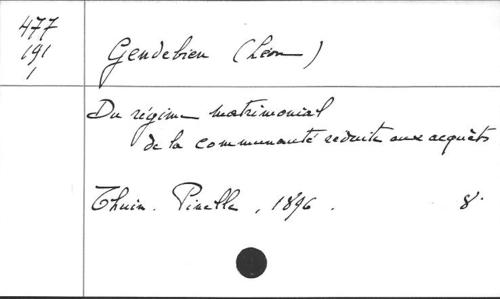 477
191
1
Gendebien (Léon)
Du régime matrimonial
de la communauté réduite aux acquêts
Thuin. Pinelle, 1896. 8°